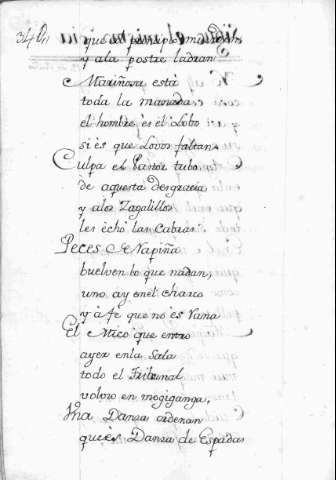 que al principio
y ala postre ladran
Mariñosa está
toda la manada
el hombre es el Lobo
si es que Lovos faltan
Culpa el Pastor tubo
de aquesta desgracia
y alos Zagalillos
les echó las Cabras
Peces de Napiña
buelven lo que nadan,
uno ay enel charco
y à fe que no es Vana
El Mico que entro
ayer enla Sala
todo el Tribunal
volvro en mogiganga,
Una Danza ordenan
que es Danza de Espadas